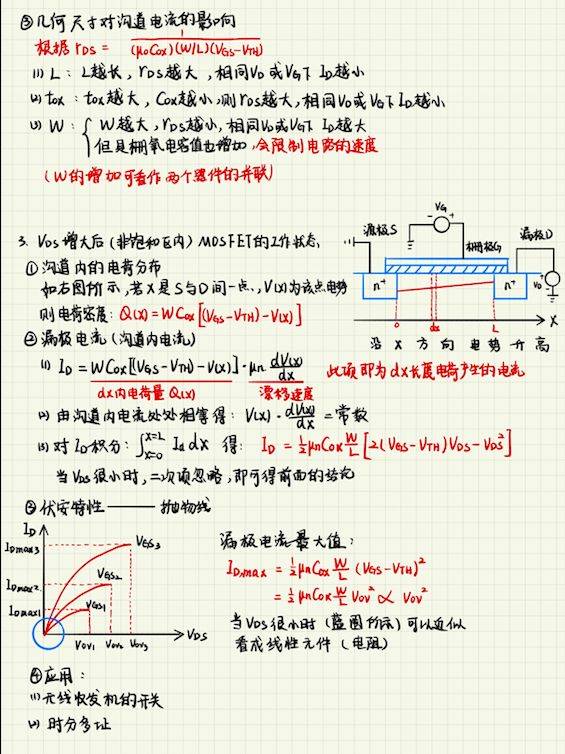 ③几何尺寸对沟道电流的影响
根据 rDS = 1/(μnCox)(W/L)(VGS-VTH)
(1) L: L越长, rDS越大, 相同VD或VG下 ID越小
(2) tox: tox越大, Cox越小, 则rDS越大, 相同VD或VG下ID越小
(3) W: { W越大, rDS越小, 相同VD或VG下 ID越大
但是栅氧电容值也增加, 会限制电路的速度
(W的增加可看作两个器件的并联)
3. VDS增大后(非饱和区内) MOSFET的工作状态
①沟道内的电荷分布
如右图所示, 若X是S与D间一点, V(x)为该点电势
则电荷密度: Q(x) = WCox[(VGS-VTH)-V(x)]
VG
源极S
栅极G
漏极D
n+
n+
VD
0
dx
L
X
沿X方向电势升高
②漏极电流(沟道内电流)
(1) ID = WCox[(VGS-VTH)-V(x)]·μn dV(x)/dx
此项即为dx长度电荷产生的电流
dx内电荷量Q(x)
漂移速度
(2) 由沟道内电流处处相等得: V(x)·dV(x)/dx = 常数
(3) 对ID积分: ∫x=0 x=L Id dx 得: ID = 1/2 μnCox W/L [2(VGS-VTH)VDS-VDS²]
当VDS很小时, 二次项忽略, 即可得前面的结论
③伏安特性——抛物线
ID
IDmax3
VGS3
IDmax2
VGS2
IDmax1
VGS1
VOV1
VOV2
VOV3
VDS
漏极电流最大值:
ID,max = 1/2 μnCox W/L (VGS-VTH)²
= 1/2 μnCox W/L VOV² ∝ VOV²
当VDS很小时(蓝圈所示)可以近似
看成线性元件(电阻)
④应用:
(1) 无线收发机的开关
(2) 时分多址